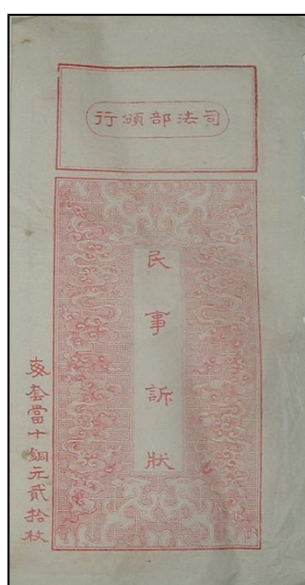 司法部頒行
民事訴狀
每套當十銅元貳拾枚